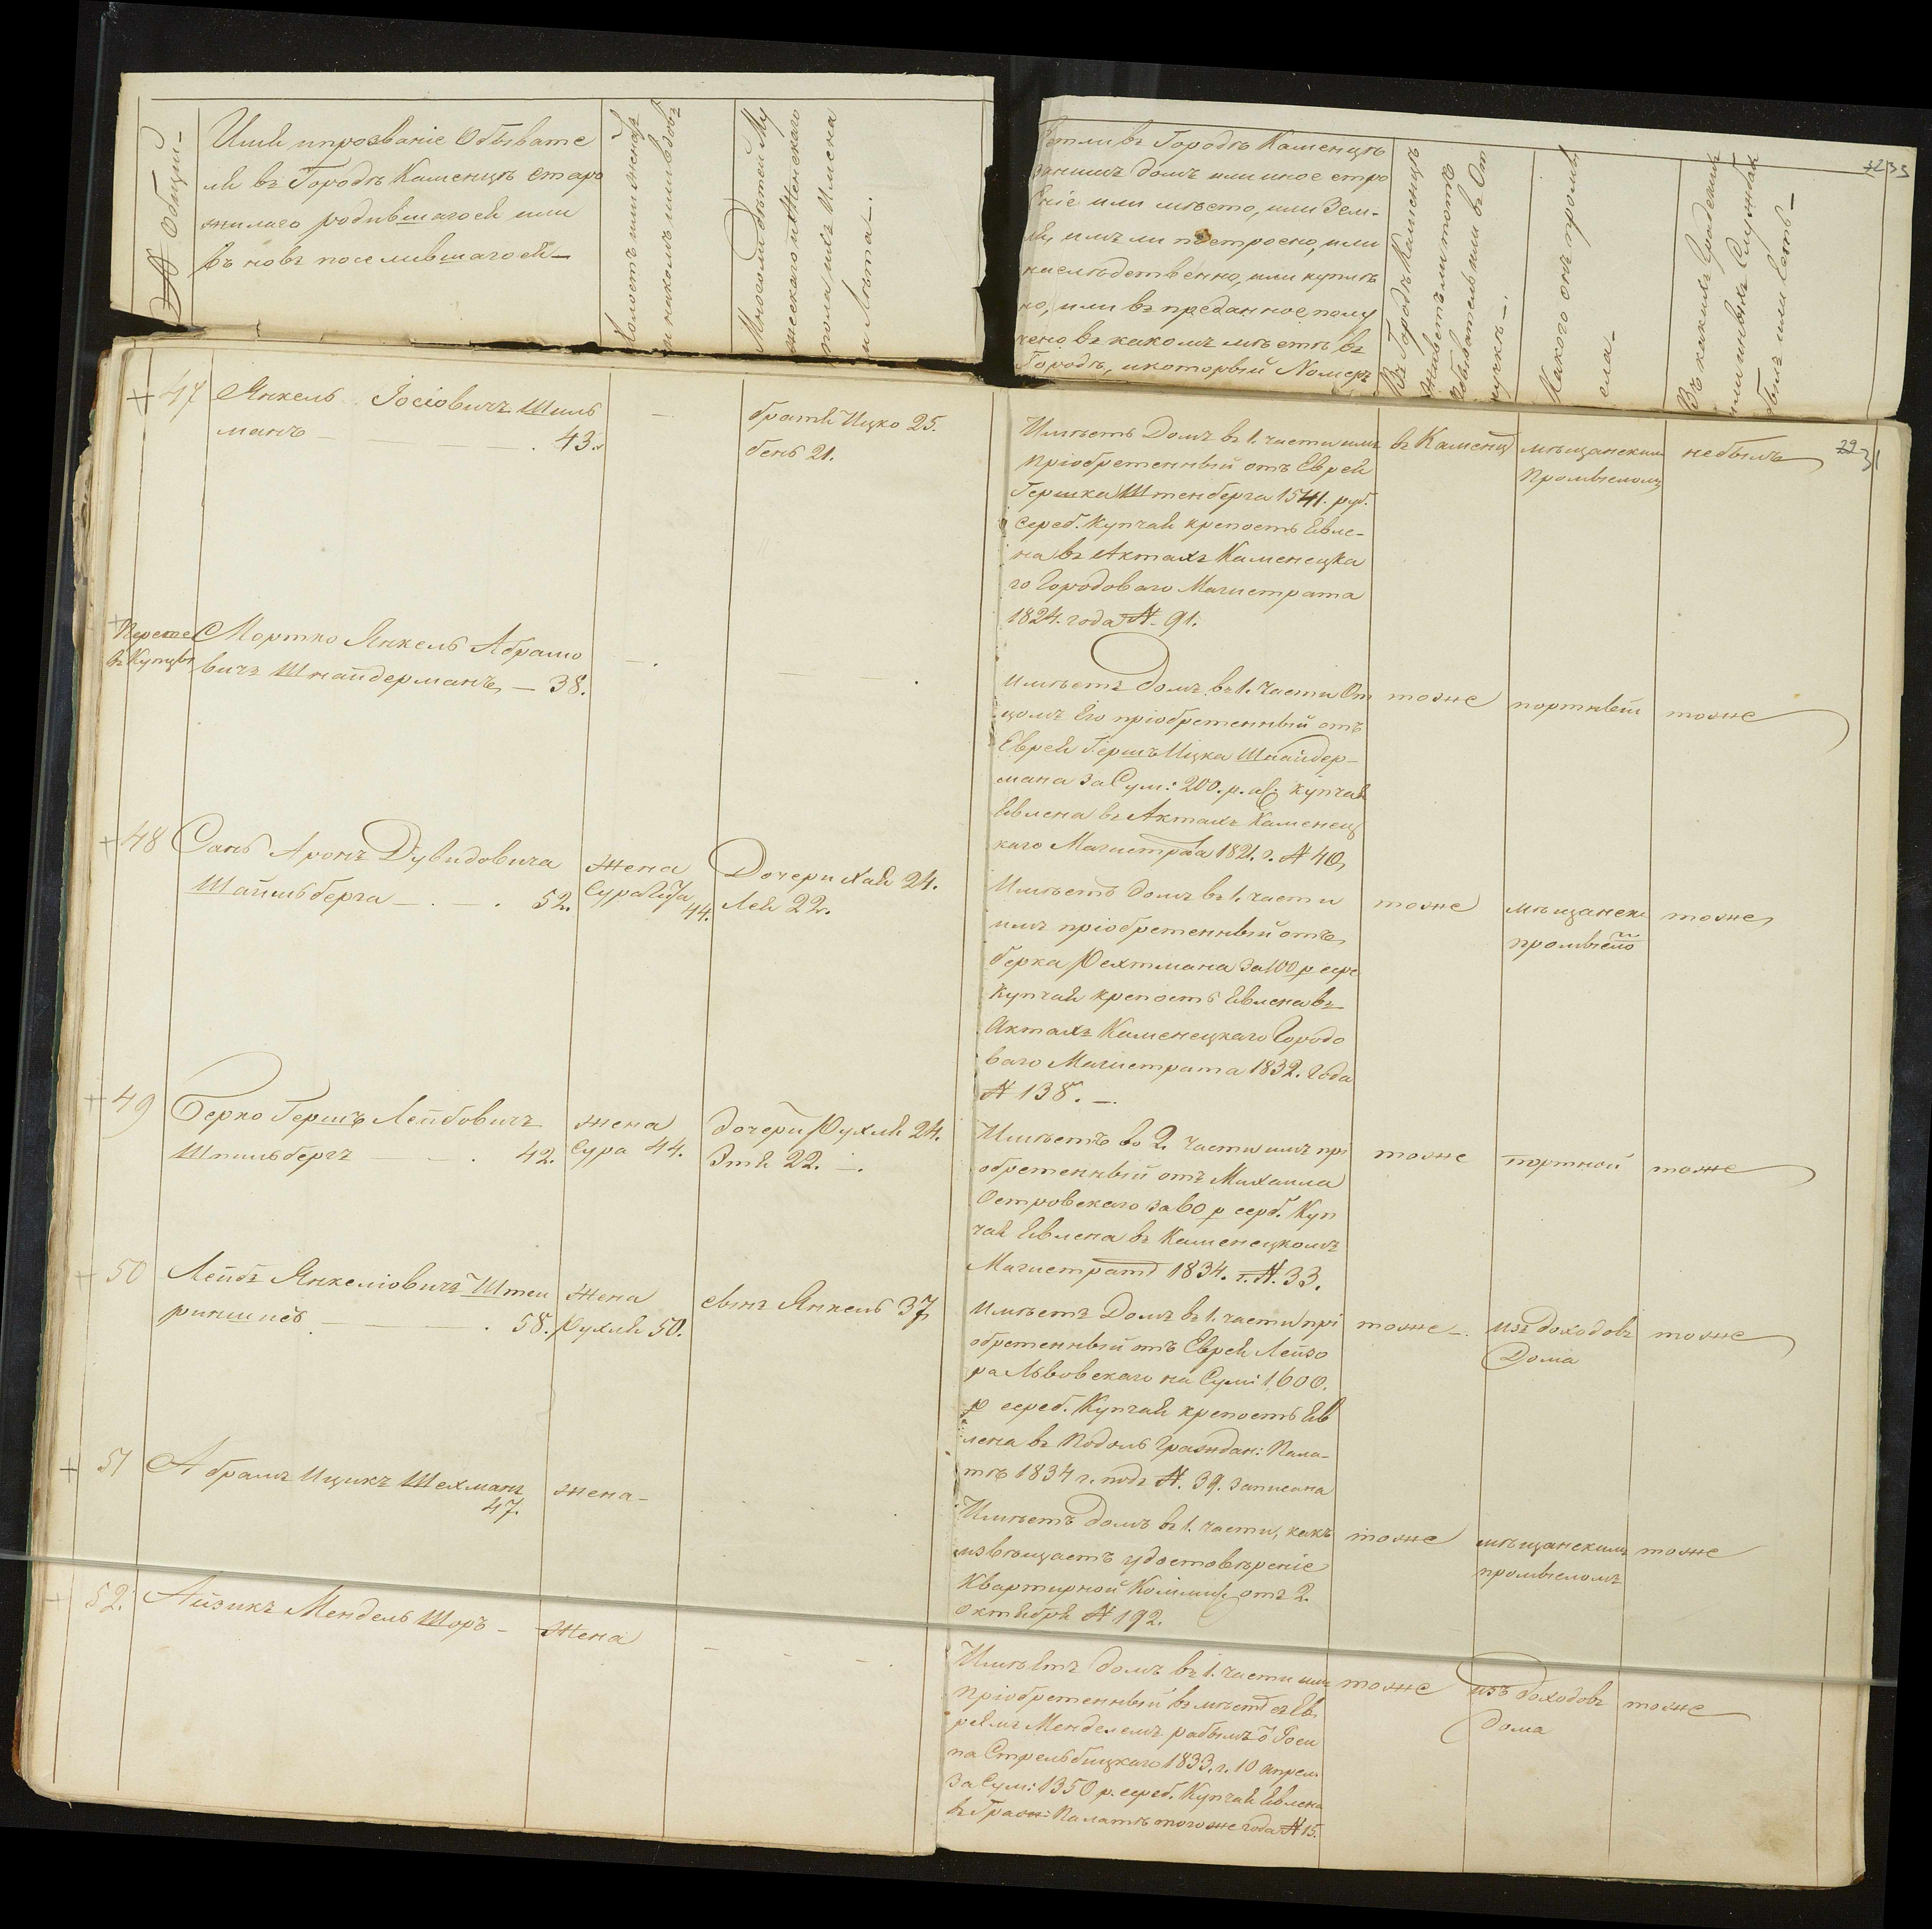 № Общий
Имя и прозвание Обывате
ля в Городѣ Каменцѣ старо
жилаго родившагося или
въ новѣ поселившагося
Холостъ или женатъ
и на комъ или вдовъ
Много ли дѣтей му
жескаго и Женскаго
пола, ихъ Имена
и Лѣта
Есть ли въ Городѣ Каменцѣ
за нимъ домъ или иное стро
еніе или мѣсто, или Зем-
ля, имъ ли построено, или
наслѣдственно, или куплѣ
но, или въ преданное полу
чено, въ какомъ мѣстѣ въ
Городѣ, и который Номеръ
Въ Городѣ Каменцѣ
Живетъ ли тотъ
Обыватель или въ От
лучкѣ
Какого онъ промы
сла
Въ какихъ Градскихъ
или иныхъ Службахъ
былъ или есть
33
47
Янкель Іосіовичъ Шиль
манъ 43.
братья Ицко 25.
бень 21.
Имѣетъ Домъ въ 1. части имъ
пріобретенный отъ Еврея
Гершка Штенберга 1541. руб.
сереб. Купчая крепость Явле-
на въ Актахъ Каменецка
го Городоваго Магистрата
1824. года № 91.
въ Каменц
мѣщанским
промысломъ
небылъ
22 31
Перешел
въ Купцы
Мортко Янкель Абрамо
вичъ Шнайдерманъ 38.
имѣетъ домъ въ 1. части От
цомъ Его пріобретенный отъ
Еврея Гершъ Ицка Шнайдер-
мана за Сум: 200. р. с. купчая
Явлена въ Актахъ Каменец
каго Магистрата 1821. г. № 40,
тоже
портный
тоже
48
Сань Аронъ Дувидовича
Шапильберга 52.
жена
Сура
44.
Дочери Хая 24.
Лея 22.
Имѣетъ домъ въ 1. части
имъ пріобретенный отъ
берка Рехтмана за 100 р сере
Купчая крепость Явлена въ
Актахъ Каменецкаго Городо
ваго Магистрата 1832. Года
№ 138.
тоже
мѣщанск
промысло
тоже
49
Берко Гершъ Лейбовичъ
Шпильбергъ 42.
жена
Сура 44.
дочери Рухля 24.
Этя 22.
Имѣетъ во 2. части имъ прі
обретенный отъ Михаила
Островскаго за 60 р сереб. Куп
чая Явлена въ Каменецкомъ
Магистратѣ 1834. г. № 33.
тоже
портной
тоже
50
Лейбъ Янкеліовичъ Штеи
ришисъ 58.
Жена
Рухля 50.
сынъ Янкель 37
имѣетъ Домъ въ 1. части прі
обретенный отъ Еврея Лейзо
ра Львовскаго на Сум: 1600.
р сереб. Купчая крепость Яв
лена въ Подоль Граждан: Пала-
тѣ 1834 г. подъ № 39. записана
тоже
изъ доходовъ
Дома
тоже
51
Абрамъ Ицикъ Шехманъ
47.
жена
Имѣетъ домъ въ 1. части, какъ
извѣщаетъ удостовѣреніе
Квартирной Комми. отъ 2.
октября № 192.
тоже
мѣщанскимъ
промысломъ
тоже
52.
Айзикъ Мендель Шоръ
Жена
Имѣетъ домъ въ 1. части им
пріобретенный въ мѣстѣ съ Ев
реямъ Менделемъ
па Стрельбицкаго 1833. г. 10 апрел.
за Сум: 1350 р. сереб. Купчая Явлена
въ Граж: Палатѣ того же года № 15.
тоже
изъ доходовъ
дома
тоже